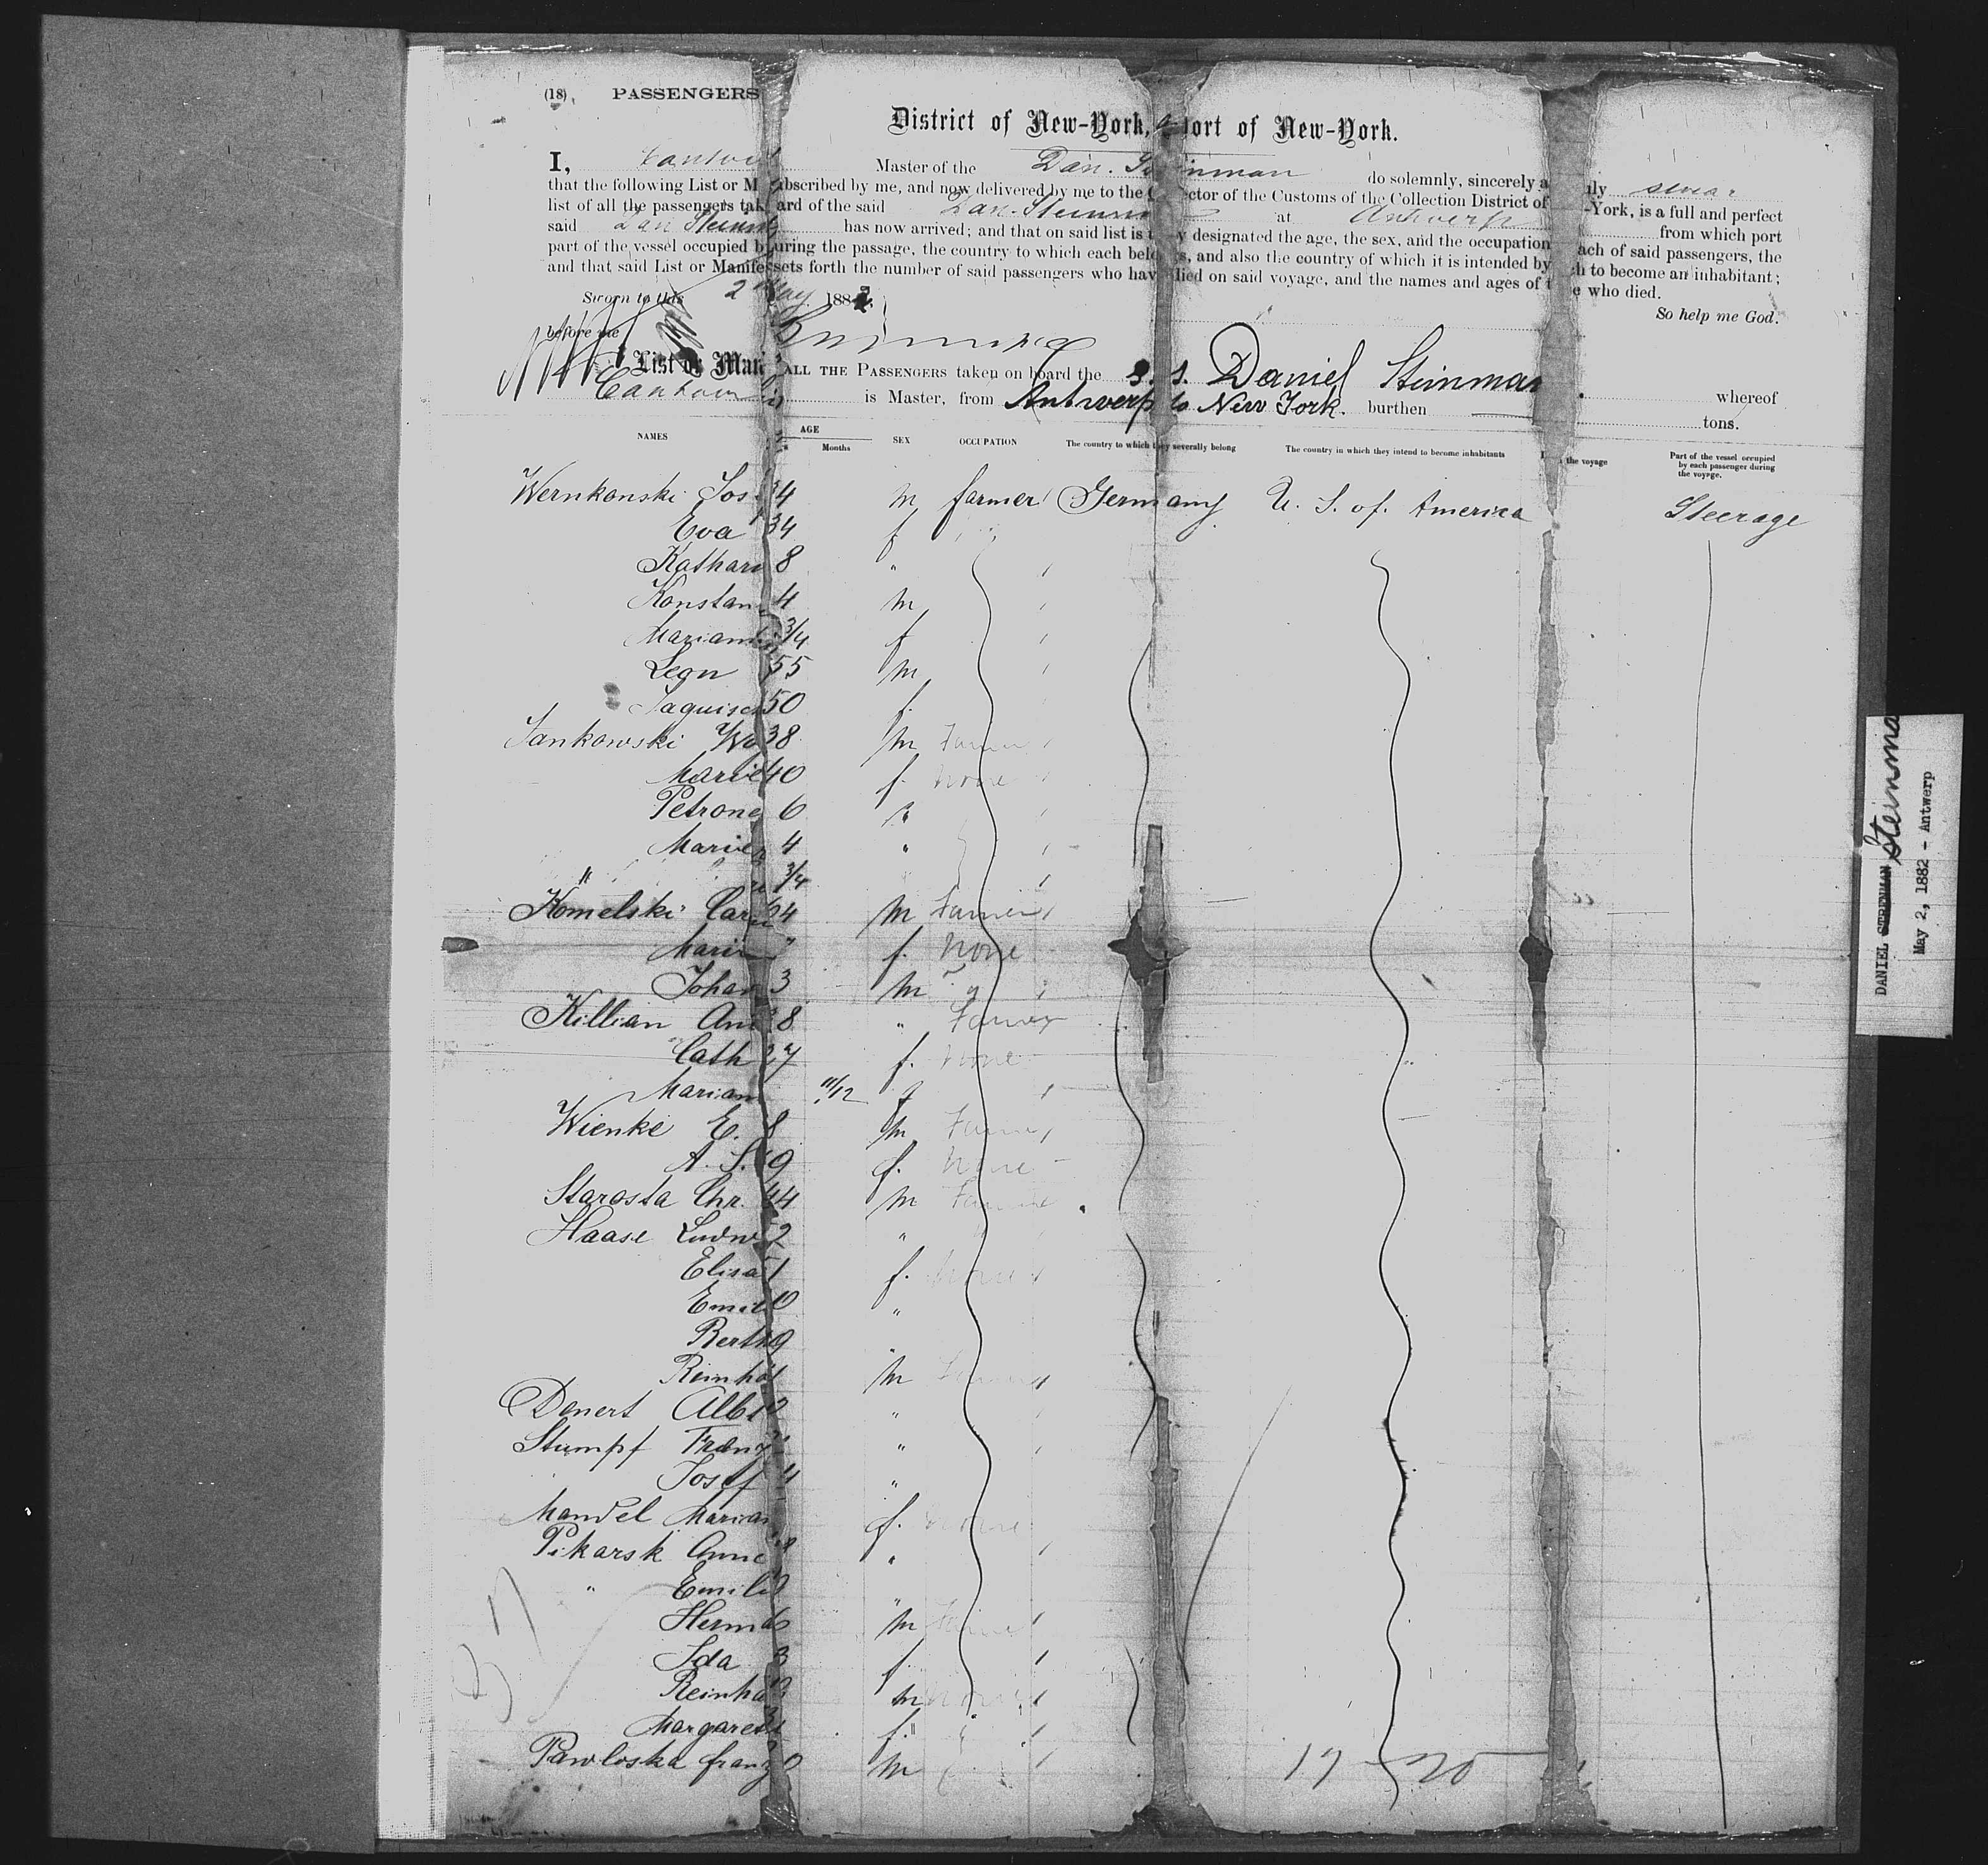 (18) PASSENGERS
District of New-York, Port of New-York.
I, Master of the Dan. Steinman do solemnly, sincerely a uly swear
that the following List or M ubscribed by me, and now delivered by me to the C ector of the Customs of the Collection District of -York, is a full and perfect
list of all the passengers tak ard of the said Dan. Steinm at Antwerp from which port
said Dan Steinm has now arrived; and that on said list is designated the age, the sex, and the occupation ach of said passengers, the
part of the vessel occupied b uring the passage, the country to which each bel s, and also the country of which it is intended by h to become an inhabitant;
and that said List or Manifes sets forth the number of said passengers who hav died on said voyage, and the names and ages of t e who died.
Sworn to this 2 May 1882 So help me God.
before me
List or Man ALL THE PASSENGERS taken on board the S. S. Daniel Steinman whereof
is Master, from Antwerp to New York. burthen tons.
NAMES AGE Months SEX OCCUPATION The country to which they severally belong The country in which they intend to become inhabitants the voyage Part of the vessel occupied by each passenger during the voyage.
Wernkonski Jos 34 m farmer Germany U. S. of. America Steerage
Eva 34 f
Kathari 8 "
Konstan 4 m
Mariann 3/4 f
Leon 55 m
50 f.
Jankowski 38 m Farmer
Marie 40 f. None
Petrone 6 "
Marie 4 "
" 3/4
Komelski Carl 4 m Farmer
Marie f. None
Johan 3 m
Killian An 8 " Farmer
Cath 37 f. None
Mariann 11/12 f
Wienke E. 8 m Farmer
A. S. 9 f. None
Starosta Chr. 44 m Farmer
Haase Ludw 2 "
Elisa 1 f. None
Emil 0 "
Berth 9 "
Reinho 1 m Farmer
Denert Alb "
Stumpf Franz "
Josef 4 "
Mandel Marian f. None
Pikarsk Anne 8 "
" Emili "
Herm 6 m None
Ida 3 f
Reinha m None
Margaret f. "
Pawloska franz 0 m
37
17 20
DANIEL STEENMAN Steinman
May 2, 1882 - Antwerp